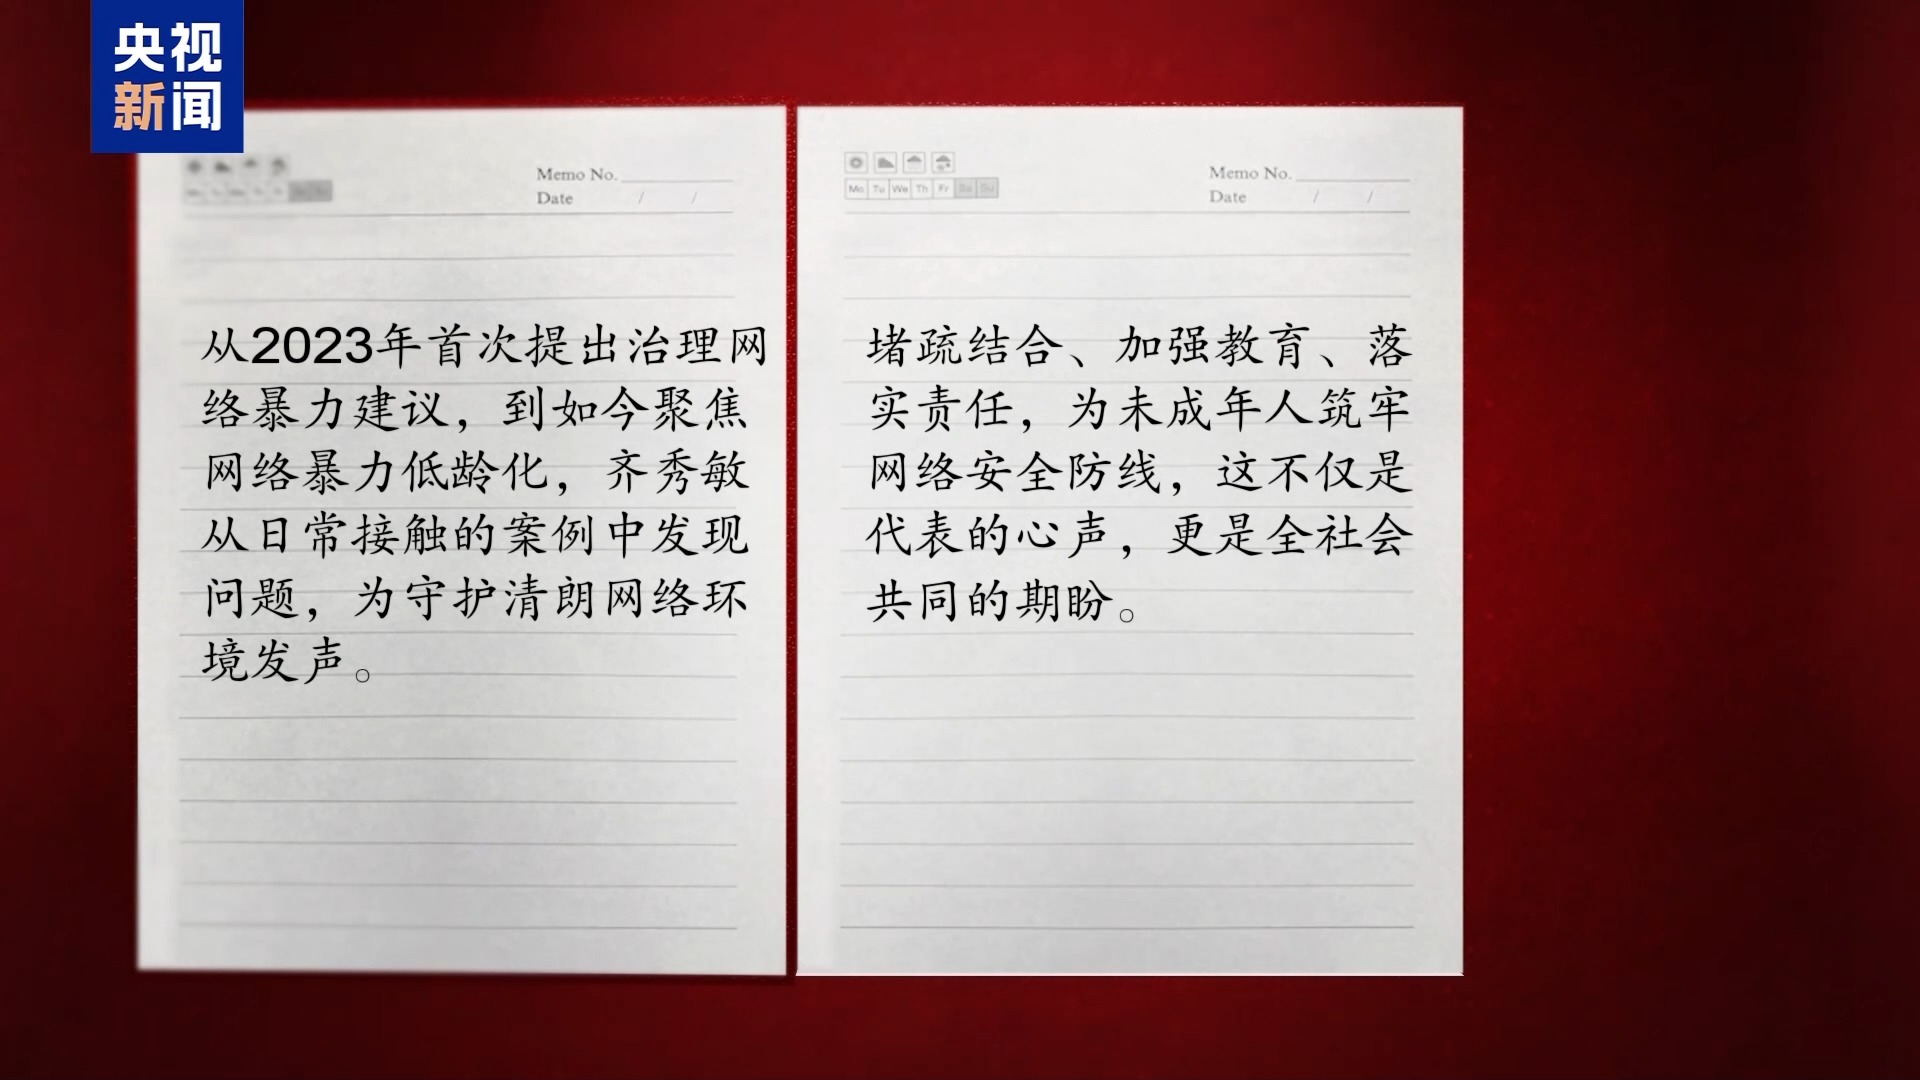 央视
新闻
Memo No.
Date / /
从2023年首次提出治理网
络暴力建议，到如今聚焦
网络暴力低龄化，齐秀敏
从日常接触的案例中发现
问题，为守护清朗网络环
境发声。
Memo No.
Date / /
Mo Tu We Th Fr Sa Su
堵疏结合、加强教育、落
实责任，为未成年人筑牢
网络安全防线，这不仅是
代表的心声，更是全社会
共同的期盼。